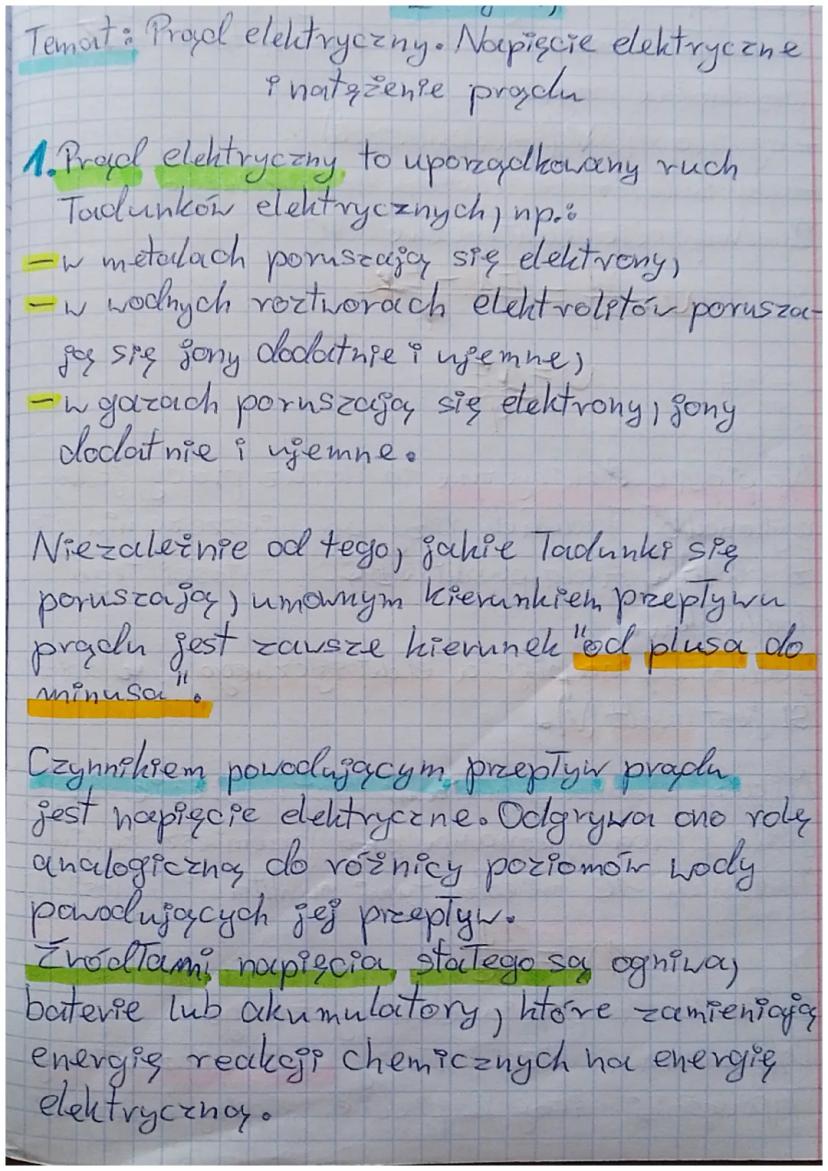 Temat: Prąd elektryczny. Napięcie elektryczne
i natężenie prądu
1. Prąd elektryczny to uporządkowany ruch
ładunków elektrycznych, np.:
- w metalach poruszają się elektrony,
- w wodnych roztworach elektrolitów porusza-
ją się jony dodatnie i ujemne,
- w gazach poruszają się elektrony, jony
dodatnie i ujemne.
Niezależnie od tego, jakie ładunki się
poruszają, umownym kierunkiem przepływu
prądu jest zawsze kierunek "od plusa do
minusa".
Czynnikiem powodującym przepływ prądu
jest napięcie elektryczne. Odgrywa ono rolę
analogiczną do różnicy poziomów wody
powodujących jej przepływ.
Źródłami napięcia stałego są ogniwa,
baterie lub akumulatory, które zamieniają
energię reakcji chemicznych na energię
elektryczną.